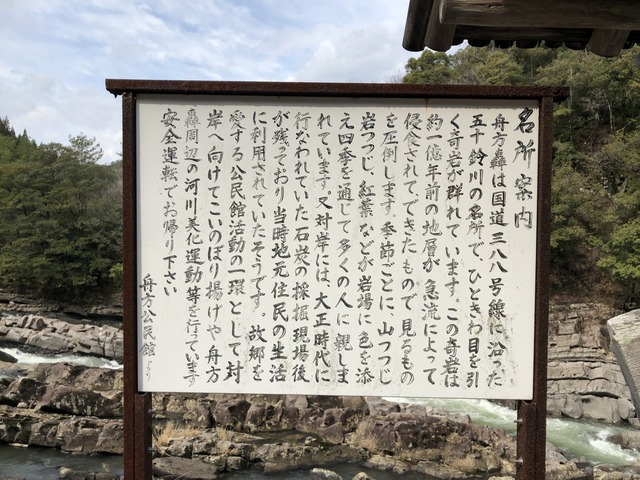 名所案内
舟方轟は国道三八八号線に沿った
五十鈴川の名所で、ひときわ目を引
く奇岩が群れています。この奇岩は
約一億年前の地層が急流によって
侵食されてできたもので見るもの
を圧倒します。季節ごとに山つつじ
岩つつじ、紅葉などが岩場に色を添
え四季を通じて多くの人に親しま
れています。又対岸には、大正時代に
行なわれていた石炭の採掘現場後
が残っており当時地元住民の生活
に利用されていたそうです。故郷を
愛する公民館活動の一環として対
岸へ向けてこいのぼり揚げや舟方
轟周辺の河川美化運動等を行っています
安全運転でお帰り下さい
舟方公民館より